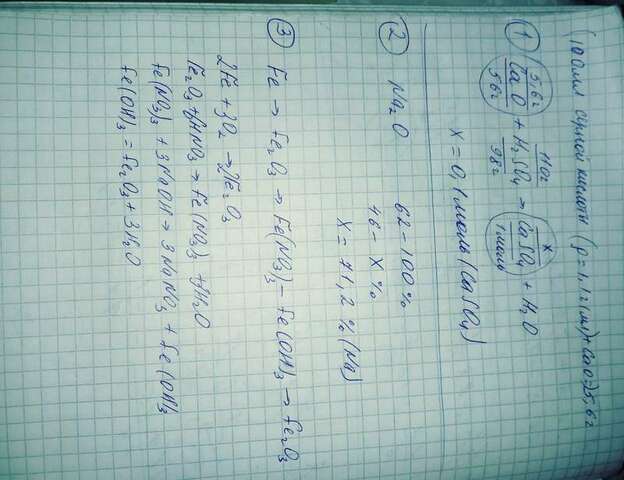 (100мл серной кислоты (ρ=1,1г/мл)+CaO=5,6г
① 5,6г 110г x
CaO + H₂SO₄ → CaSO₄ + H₂O
56г 98г 1моль
x = 0,1моль (CaSO₄)
② Na₂O 62 – 100%
46 – x%
x = 71,2% (Na)
③ Fe → Fe₂O₃ → Fe(NO₃)₃ – Fe(OH)₃ → Fe₂O₃
2Fe + 3O₂ → 2Fe₂O₃
Fe₂O₃ + 6HNO₃ → Fe(NO₃) + H₂O
Fe(NO₃)₃ + 3NaOH → 3NaNO₃ + Fe(OH)₃
Fe(OH)₃ = Fe₂O₃ + 3H₂O